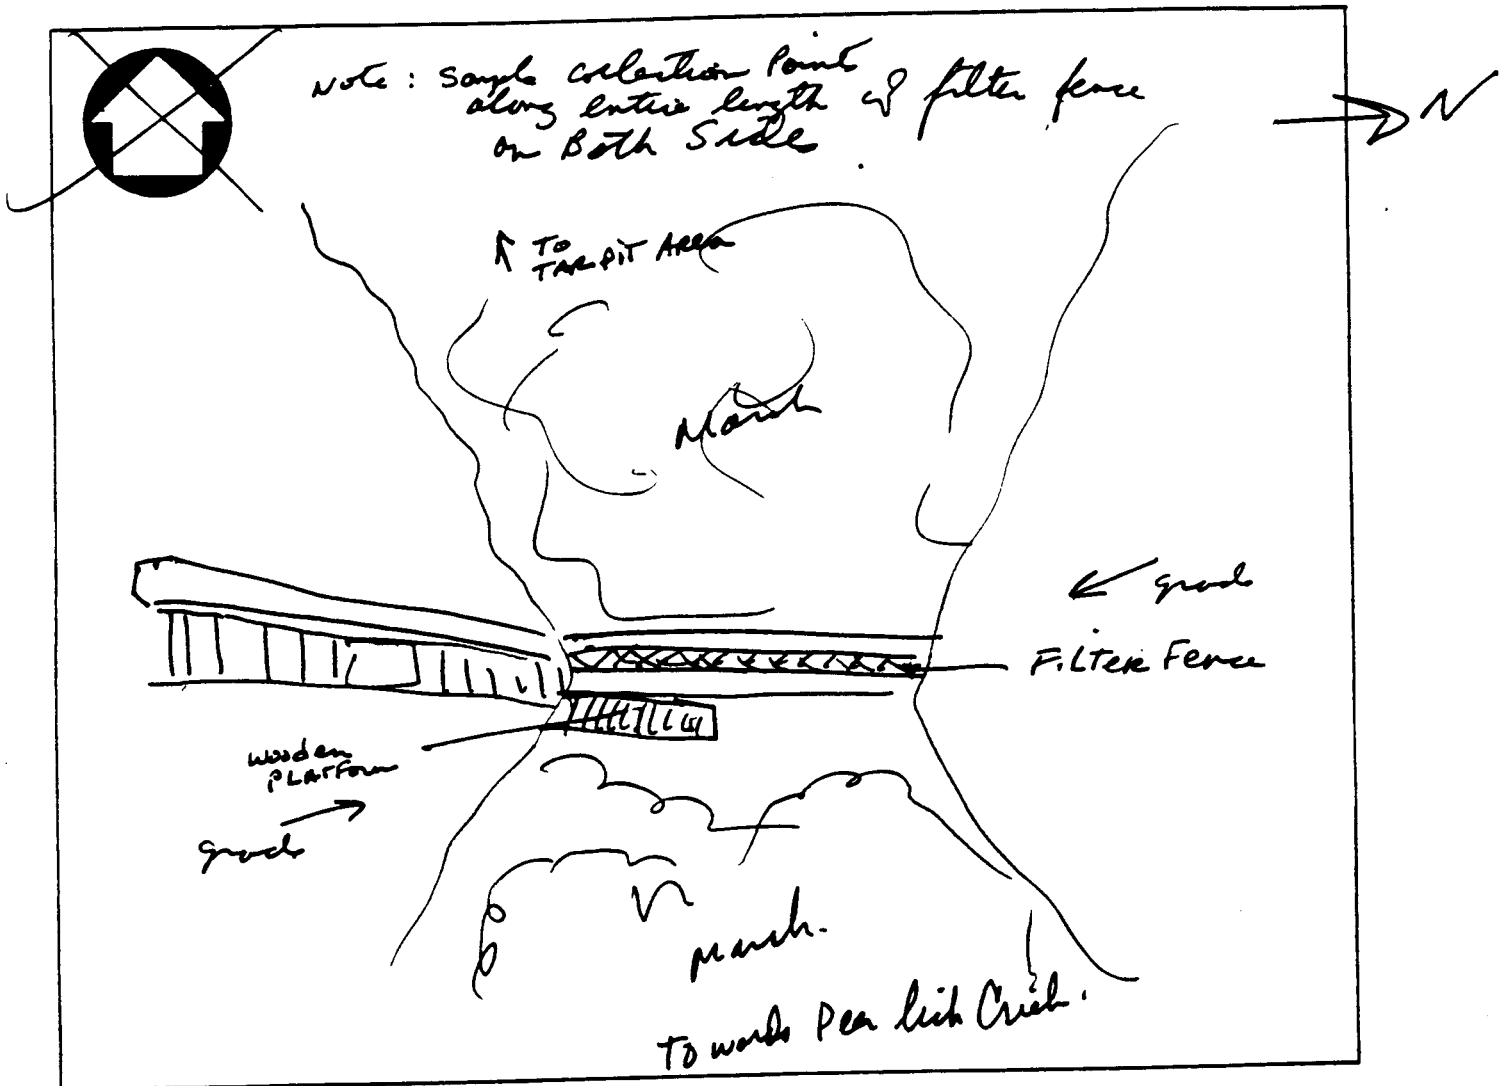 Note: Sample collection Points
along entire length of filter fence
on Both Side
N
↑ To
TAR PIT AREA
Marsh
← grade
FILTER FENCE
wooden
PLATFORM
→
grade
Marsh.
Towards Deer Lick Creek.